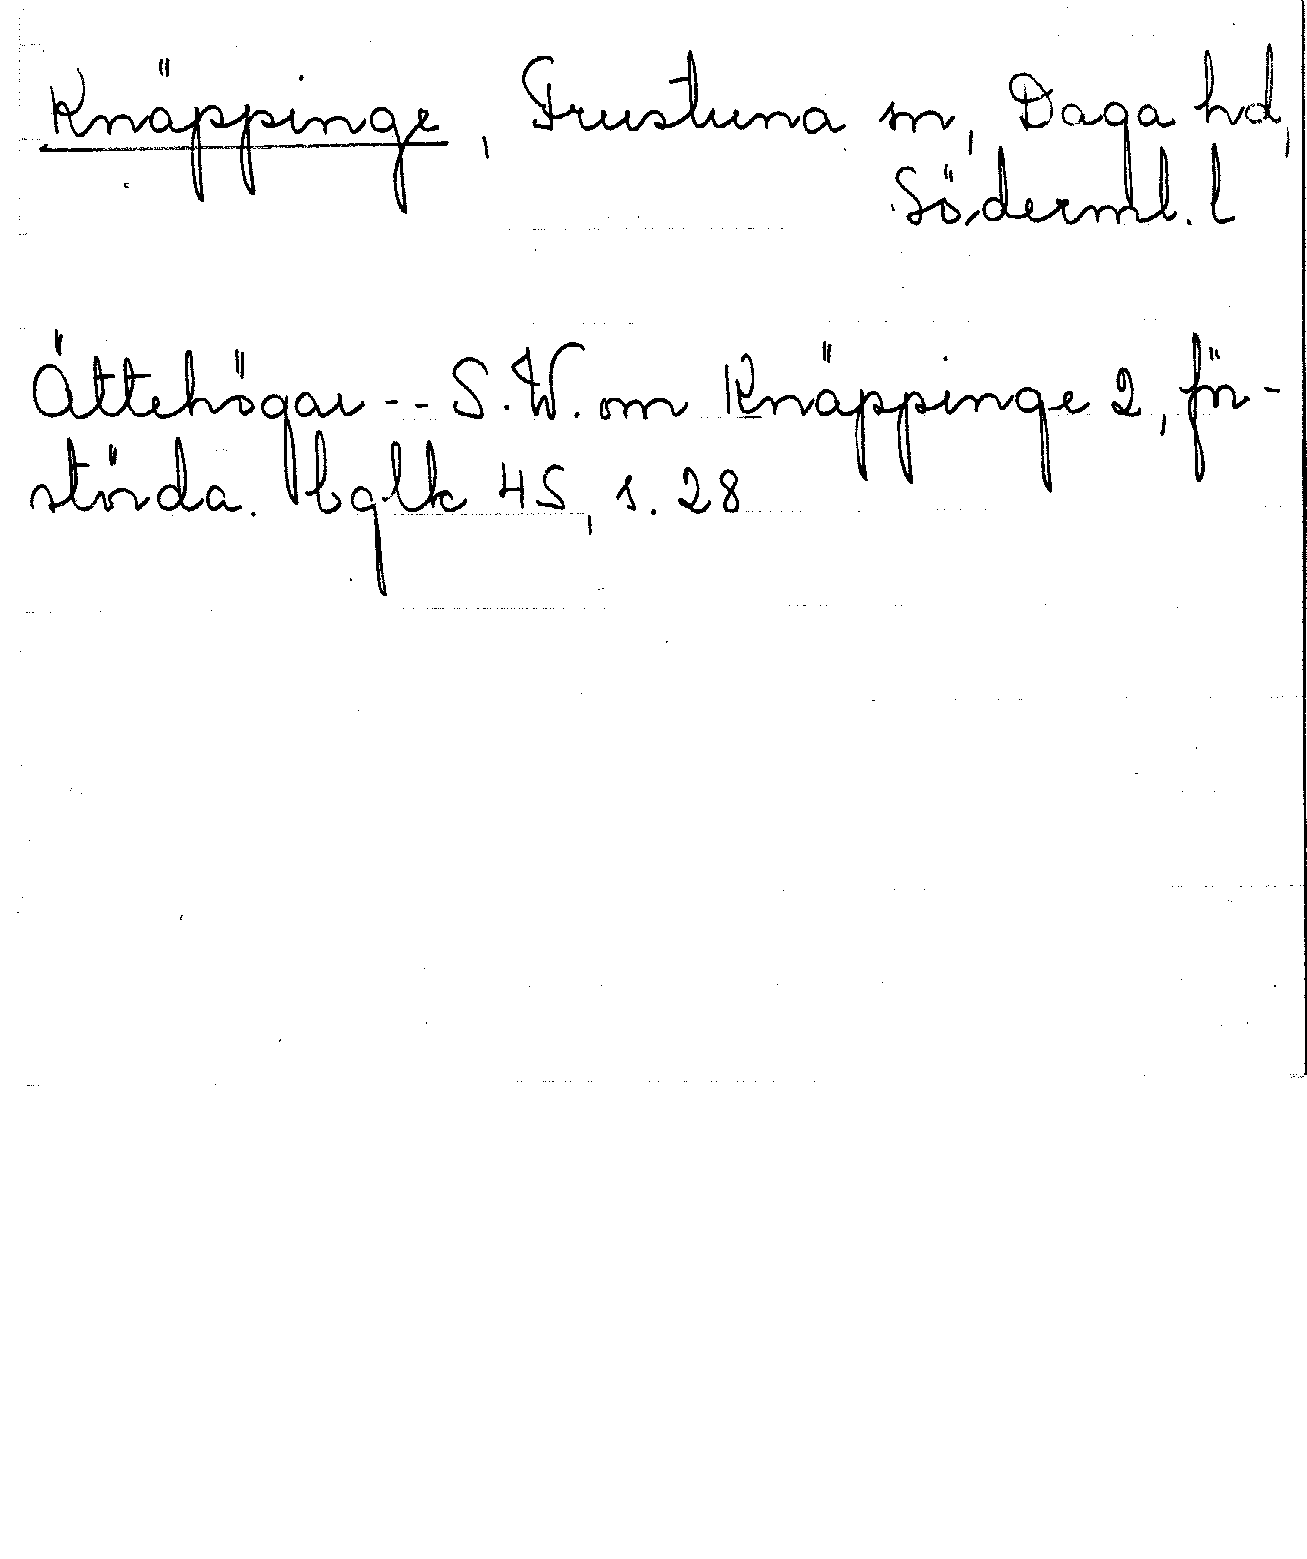 Knäppinge, Frustuna sn, Daga hd,
Söderml. l
Ättehögar -- S.W. om Knäppinge 2, för-
störda. bglk 45, s. 28